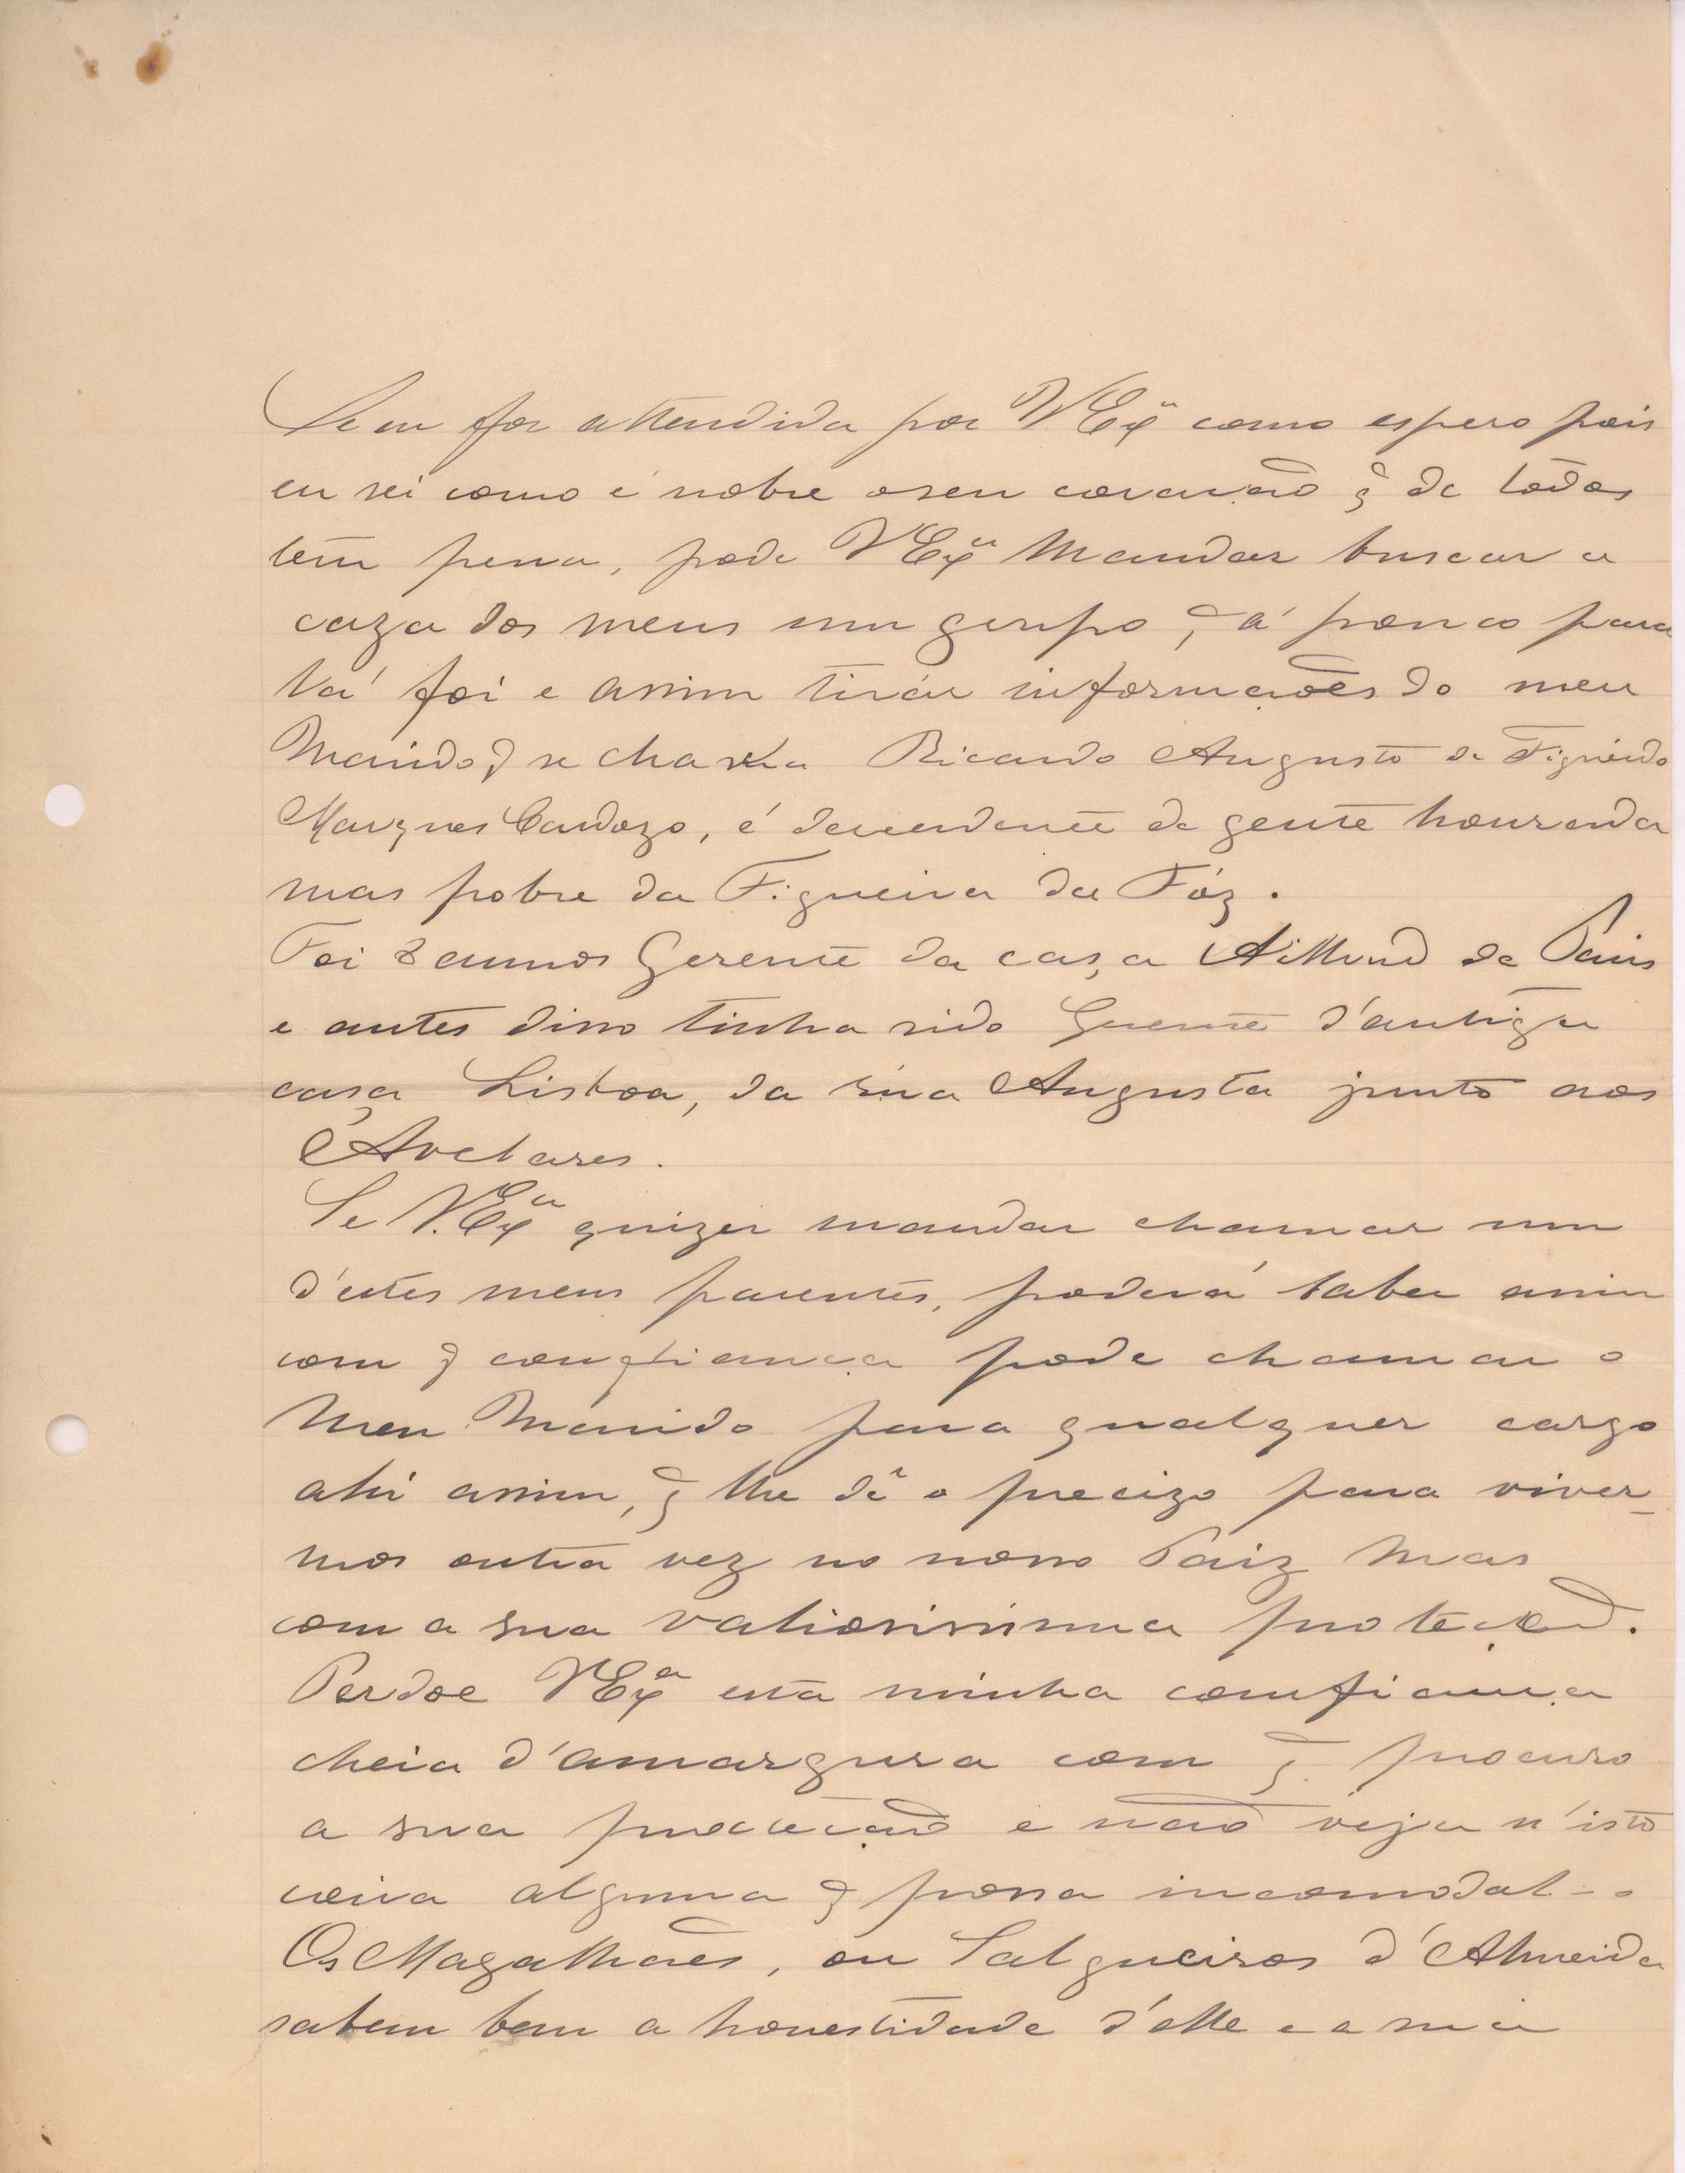 Se eu for attendida por V Exª como espero pois
eu sei como é nobre o seu coração q̃ de todos
tem pena, pode V Exª mandar buscar a
caza dos meus um grupo, q̃ á pouco para
lá foi e assim tirár informações do meu
Marido, q̃ se chama Ricardo Augusto de Figueirdo
Marques Cardozo, é descendente de gente honrada
mas pobre da Figueira da Fóz.
Foi 8 annos Gerente da casa Aillaud de Paris
e antes disso tinha sido Gerente d'antiga
casa Lisboa, da rua Augusta junto aos
Avelares.
Se V. Exª quizer mandar chamar um
d'estes meus parentes, poderá saber assim
com q̃ confiança pode chamar o
meu Marido para qualquer cargo
ahi assim, q̃ lhe dê o precizo para viver-
mos outra vez no nosso Paiz mas
com a sua valiosissima protecção.
Perdoe V Exª esta minha comfiança
cheia d'amargura com q̃ procuro
a sua protecção e não veja n'isto
coisa alguma q̃ possa incomodal-o
Os Magalhães, ou Salgueiros d'Almeida
sabem bem a honestidade d'elle e a minha